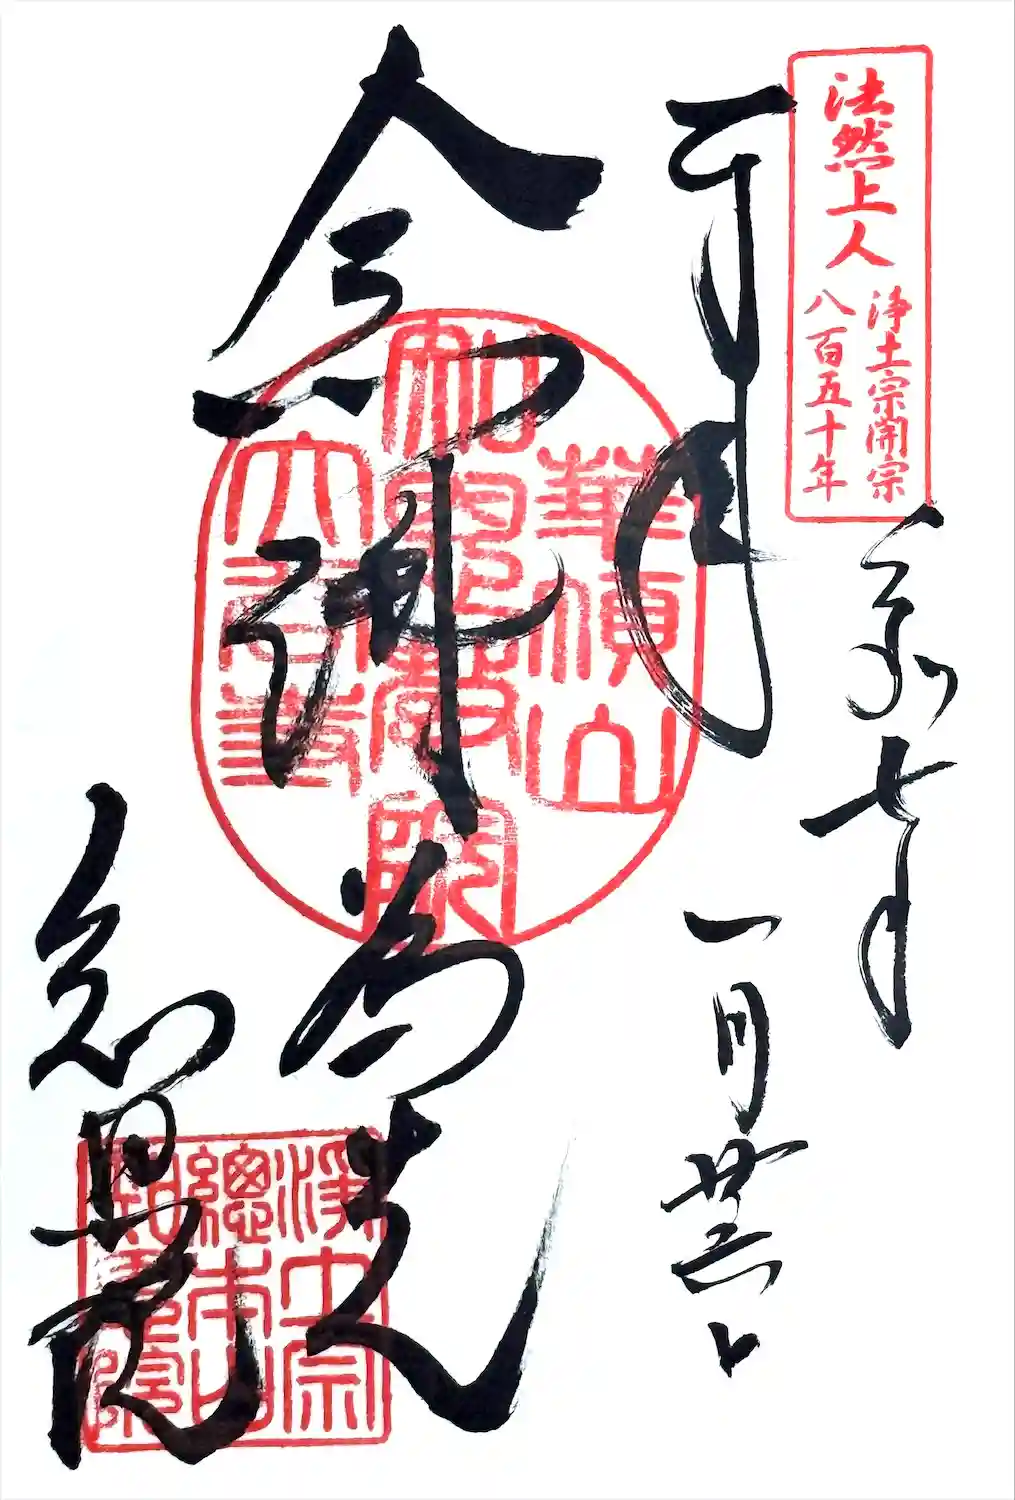 法然上人
浄土宗開宗
八百五十年
令和七年
奉拝
一月
華頂山
知恩教院
大谷寺
念佛為先
知恩院
淨土宗
總本山
知恩院